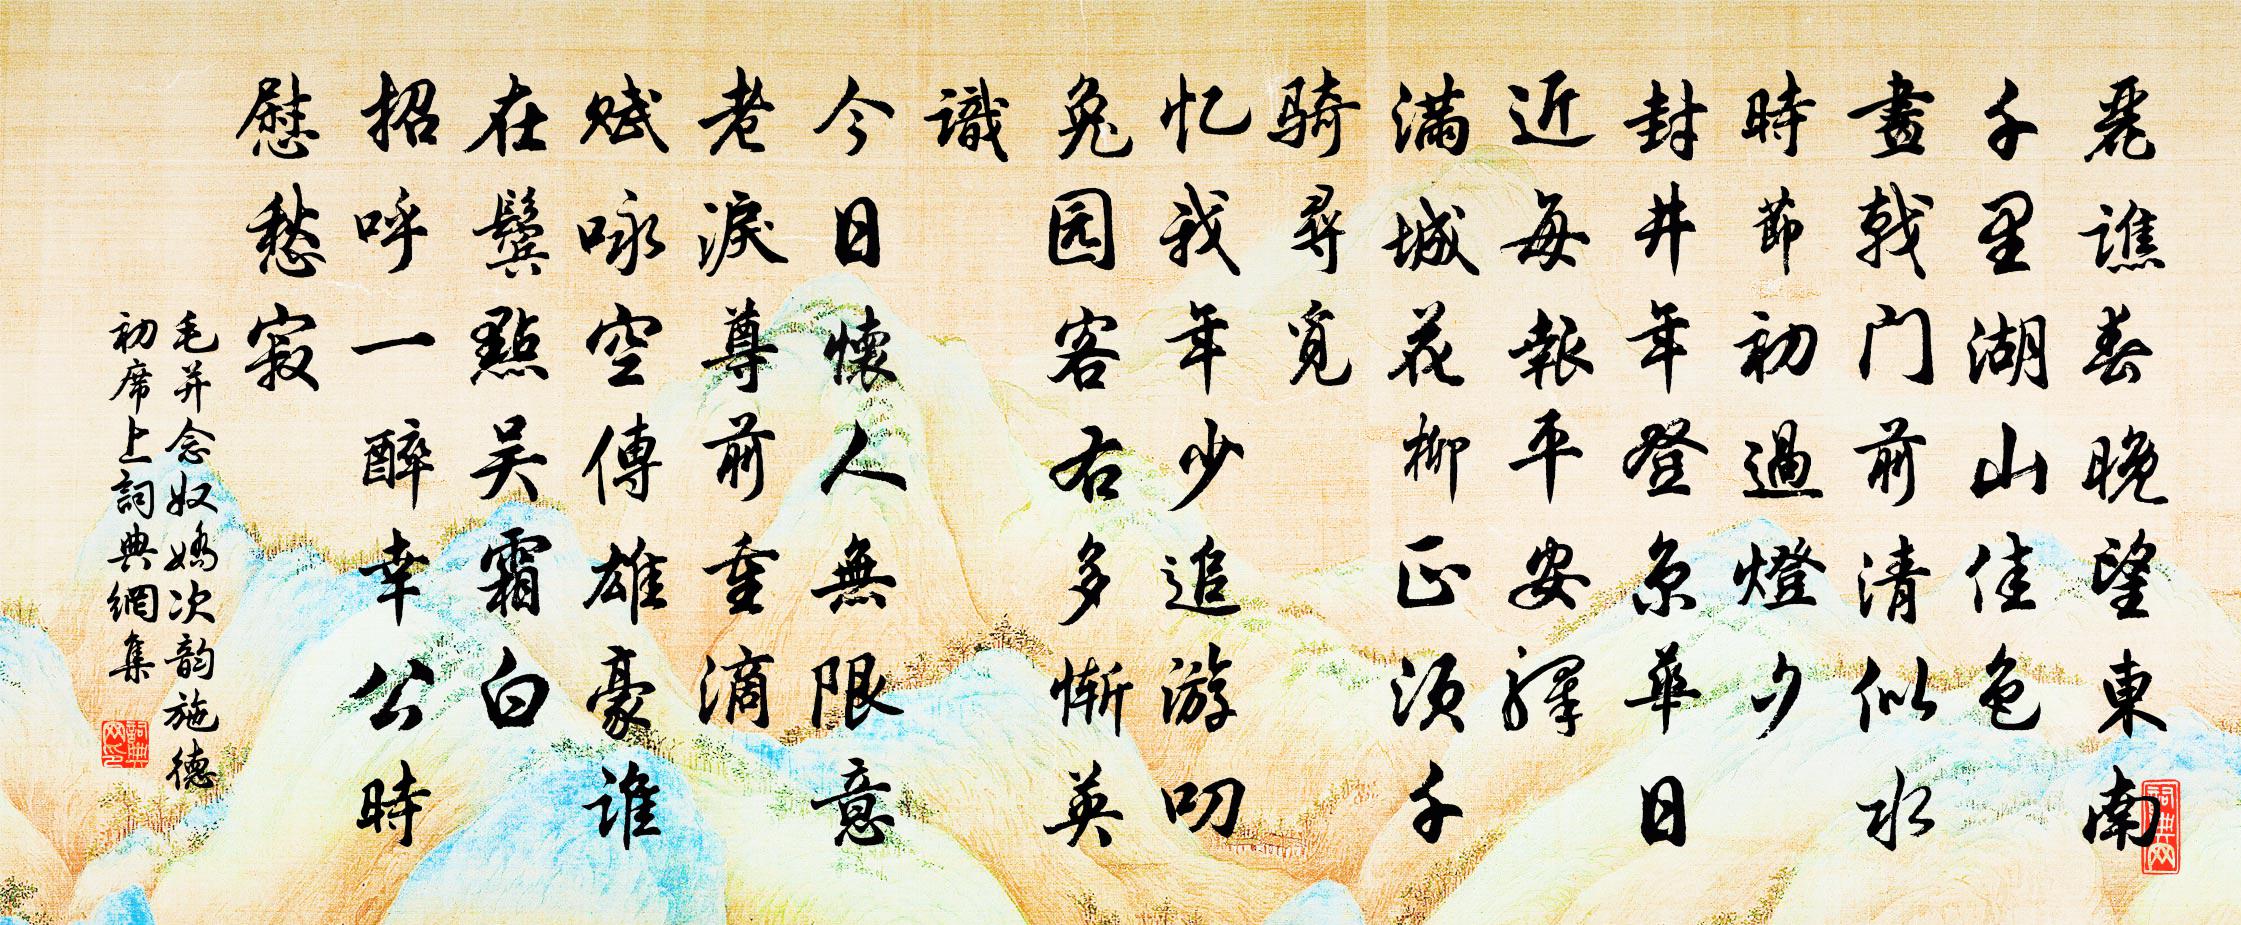 麗譙春晚望東南
千里湖山佳色
畫戟门前清似水
時節初過燈夕
封井年登京華日
近每報平安驛
满城花柳正須千
騎尋覓
忆我年少追游叨
兔园客右多慚英
識
今日懷人無限意
老淚尊前重滴
賦咏空傳雄豪誰
在鬓點吴霜白
招呼一醉幸公時
慰愁寂
毛并念奴嬌次韵施德
初席上詞典網集
詞典网
詞典网印